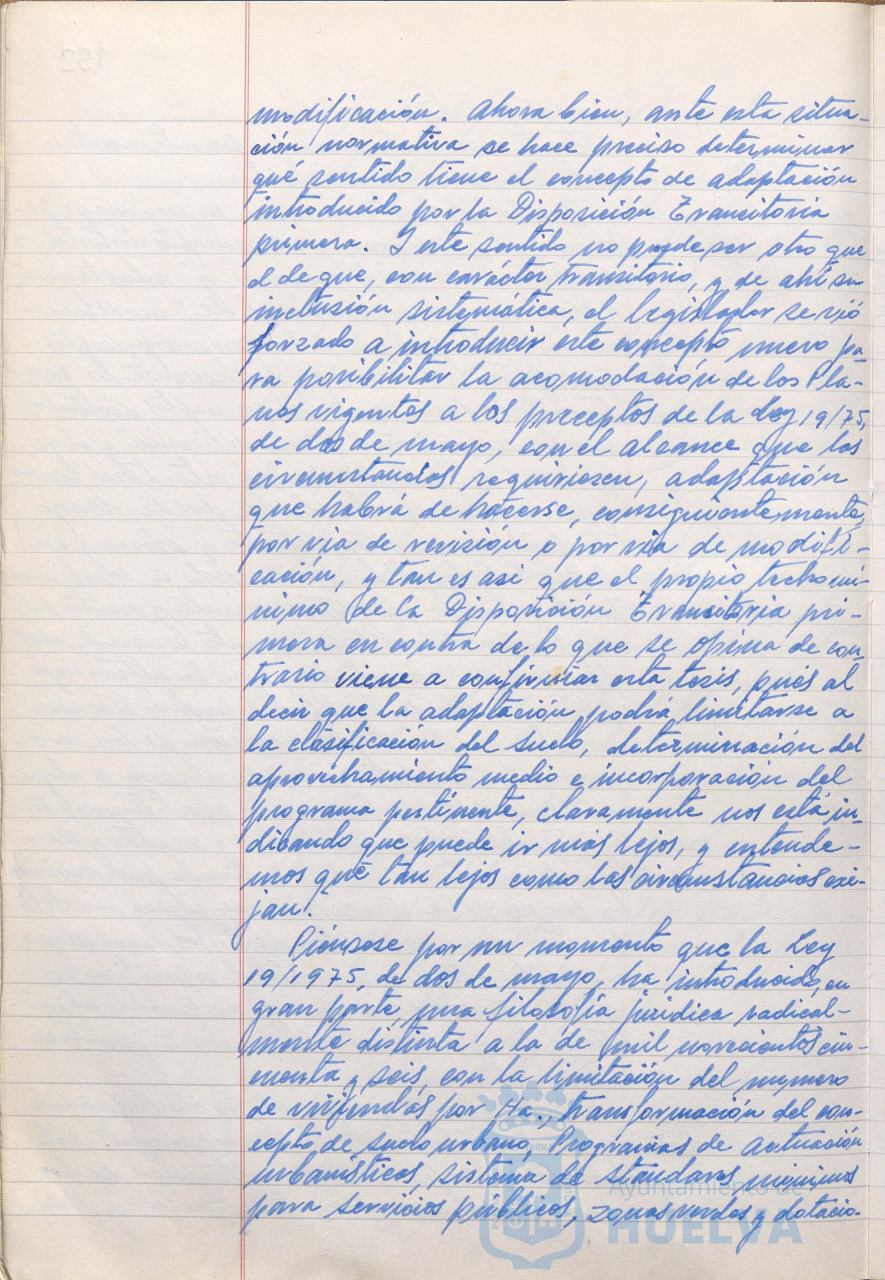 modificación. Ahora bien, ante esta situa-
ción normativa se hace preciso determinar
qué sentido tiene el concepto de adaptación
introducido por la Disposición Transitoria
primera. Y este sentido no puede ser otro que
el de que, con carácter transitorio, y de ahí su
inclusión sistemática, el legislador se vió
forzado a introducir este concepto nuevo pa-
ra posibilitar la acomodación de los Pla-
nes vigentes a los preceptos de la Ley 19/75,
de dos de mayo, con el alcance que las
circunstancias requiriesen, adaptación
que habrá de hacerse, consiguientemente,
por via de revisión o por via de modifi-
cación, y tan es así que el propio techo mí-
nimo de la Disposición Transitoria pri-
mera en contra de lo que se opina de con-
trario viene a confirmar esta tesis, pués al
decir que la adaptación podrá limitarse a
la clasificación del suelo, determinación del
aprovechamiento medio e incorporación del
programa pertinente, claramente nos está in-
dicando que puede ir más lejos, y entende-
mos que tan lejos como las circunstancias exi-
jan.
Piénsese por un momento que la Ley
19/1975, de dos de mayo, ha introducido, en
gran parte, una filosofía jurídica radical-
mente distinta a la de mil novecientos cin-
cuenta y seis, con la limitación del numero
de viviendas por Ha., transformación del con-
cepto de suelo urbano, Programas de actuación
urbanísticos, sistema de standares minimos
para servicios públicos, zonas verdes y dotacio-
Ayuntamiento de
HUELVA